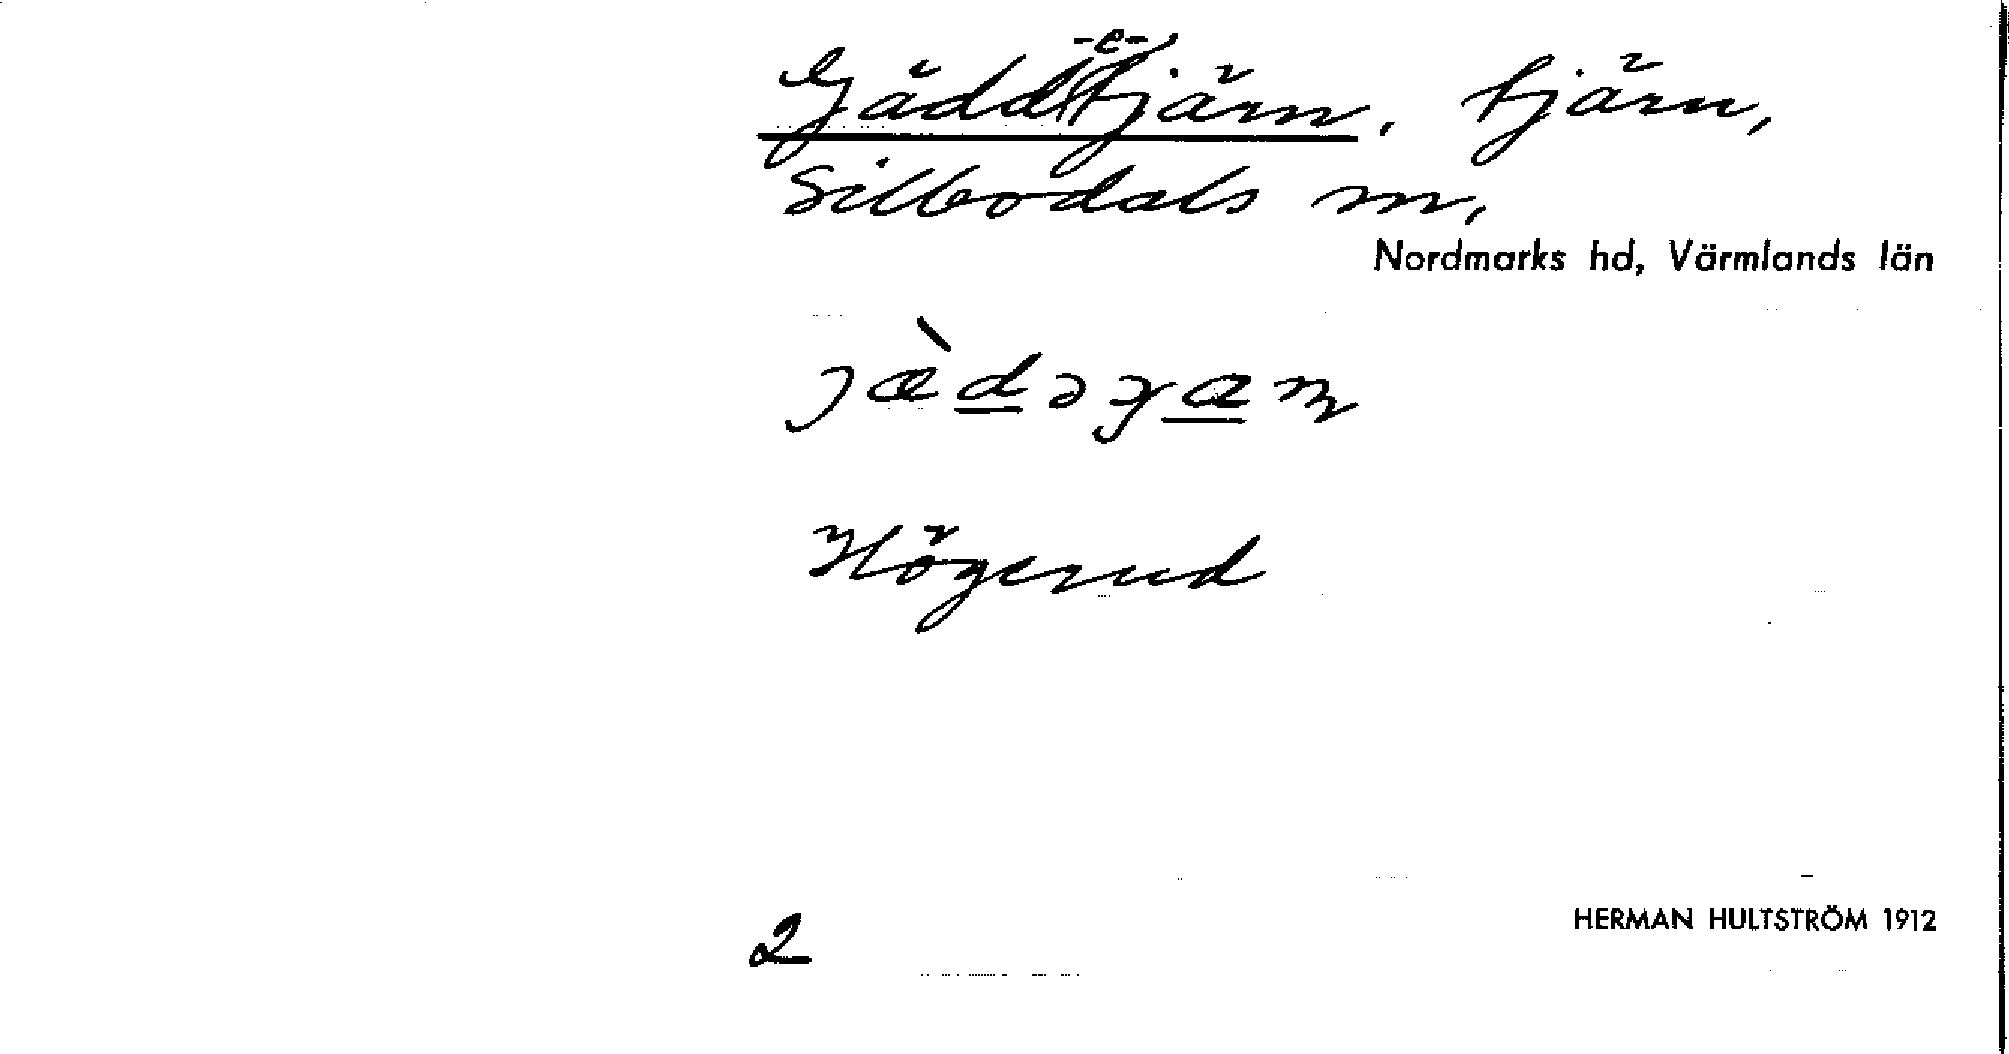 -e-
Gäddtjärn, tjärn,
Silbodals sn,
Nordmarks hd, Värmlands län
Högerud
2
HERMAN HULTSTRÖM 1912